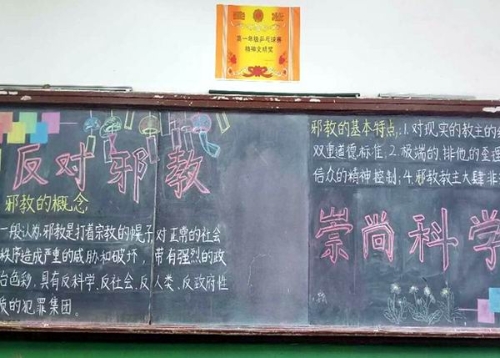 奖状
第一年级乒乓球赛
精神文明奖
反对邪教
邪教的概念:
一般认为,邪教是打着宗教的幌子,对正常的社会
秩序造成严重的威胁和破坏,带有强烈的政
治色彩,具有反科学、反社会、反人类、反政府性
质的犯罪集团。
邪教的基本特点:1.对现实的教主的
双重道德标准.2.极端的排他的
信众的精神控制;4.邪教教主大肆非
崇尚科学